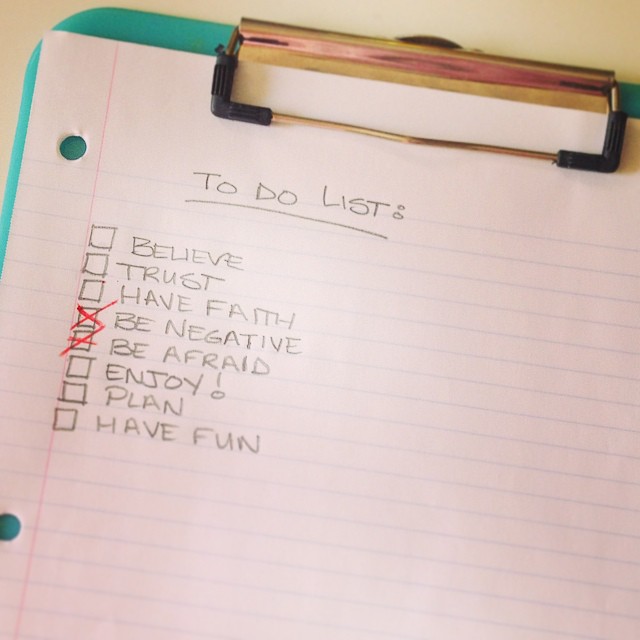 TO DO LIST:
BELIEVE
TRUST
HAVE FAITH
BE NEGATIVE
BE AFRAID
ENJOY!
PLAN
HAVE FUN